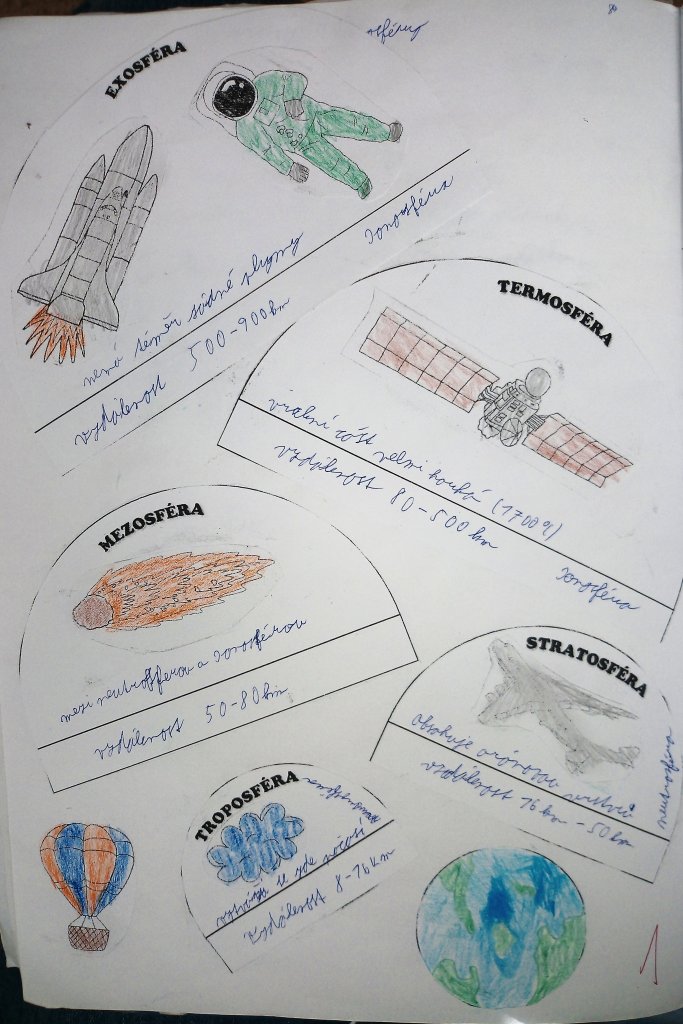 EXOSFÉRA
nemá téměř žádné plyny
vzdálenost 500-900 km
Ionosféra
TERMOSFÉRA
velmi horká (1700°C)
vzdálenost 80-500 km
Ionosféra
MEZOSFÉRA
mezi neutrosférou a Ionosférou
vzdálenost 50-80 km
STRATOSFÉRA
obsahuje ozónovou vrstvu
vzdálenost 16 km - 50 km
neutrosféra
TROPOSFÉRA
neutrosféra
vytváří se zde počasí
vzdálenost 8-16 km
1